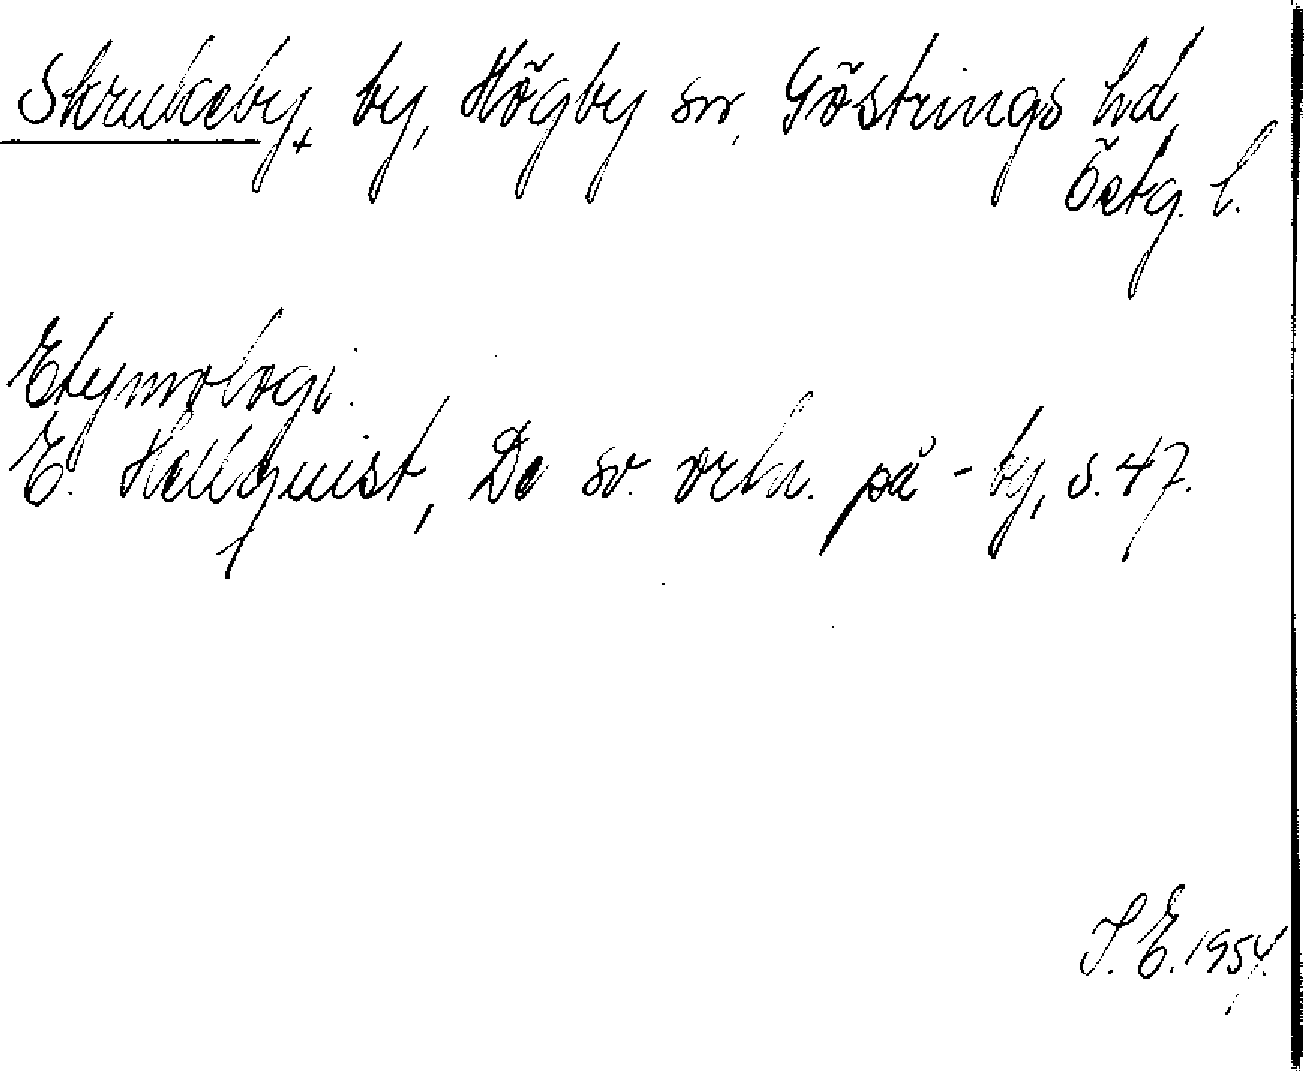 Skrukeby, by, Högby sn, Göstrings hd,
Östg. l.
Etymologi.
E. Hellquist, De sv. ortn. på -by, s. 47.
I. E. 1954.